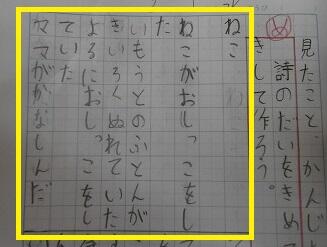 見たこと、かんじ
め
詩のだいをきめ
きして作ろう。
ねこ
ねこがおしっこをし
た
いもうとのふとんが
きいろくぬれていた
よるにおしっこをし
ていた
ママがかなしんだ